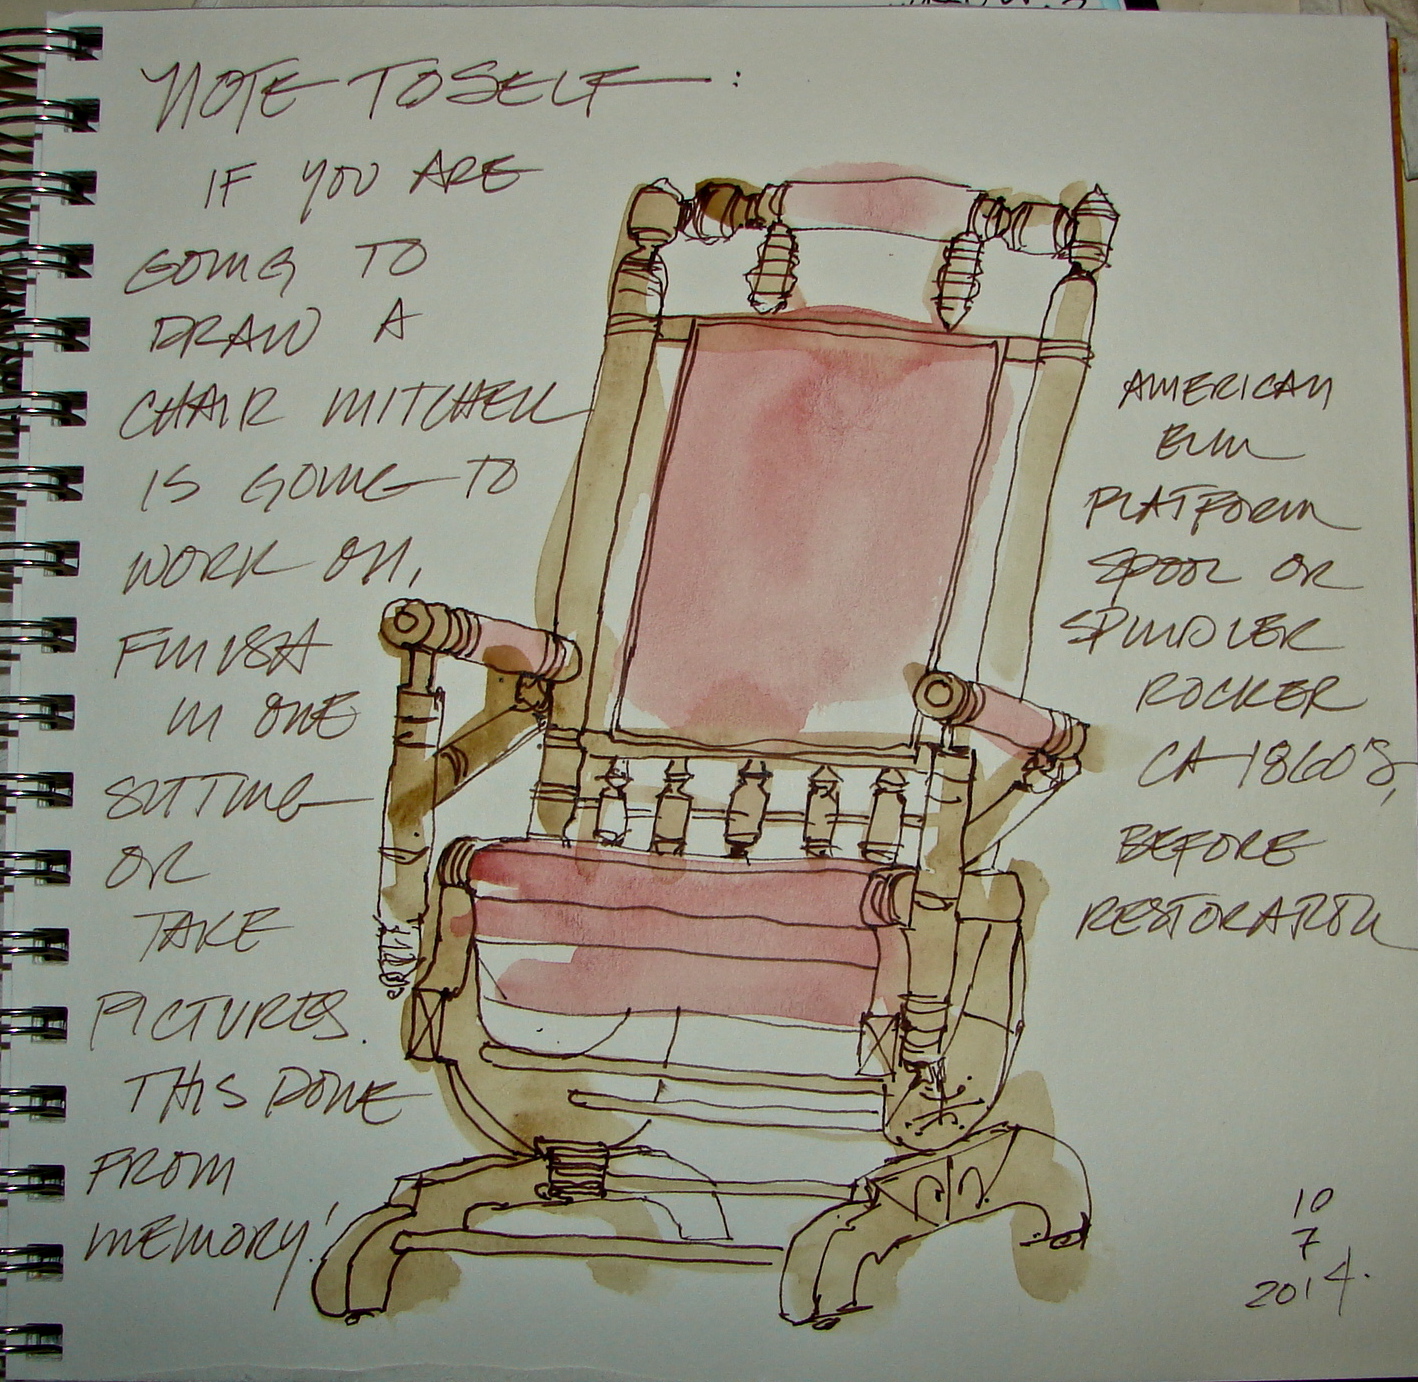 NOTE TO SELF:
IF YOU ARE
GOING TO
DRAW A
CHAIR MITCHELL
IS GOING TO
WORK ON,
FINISH
IN ONE
SITTING
OR
TAKE
PICTURES.
THIS DONE
FROM
MEMORY!
AMERICAN
ELM
PLATFORM
SPOOL OR
SPINDLER
ROCKER
CA 1860'S,
BEFORE
RESTORATION
10
7
2014.